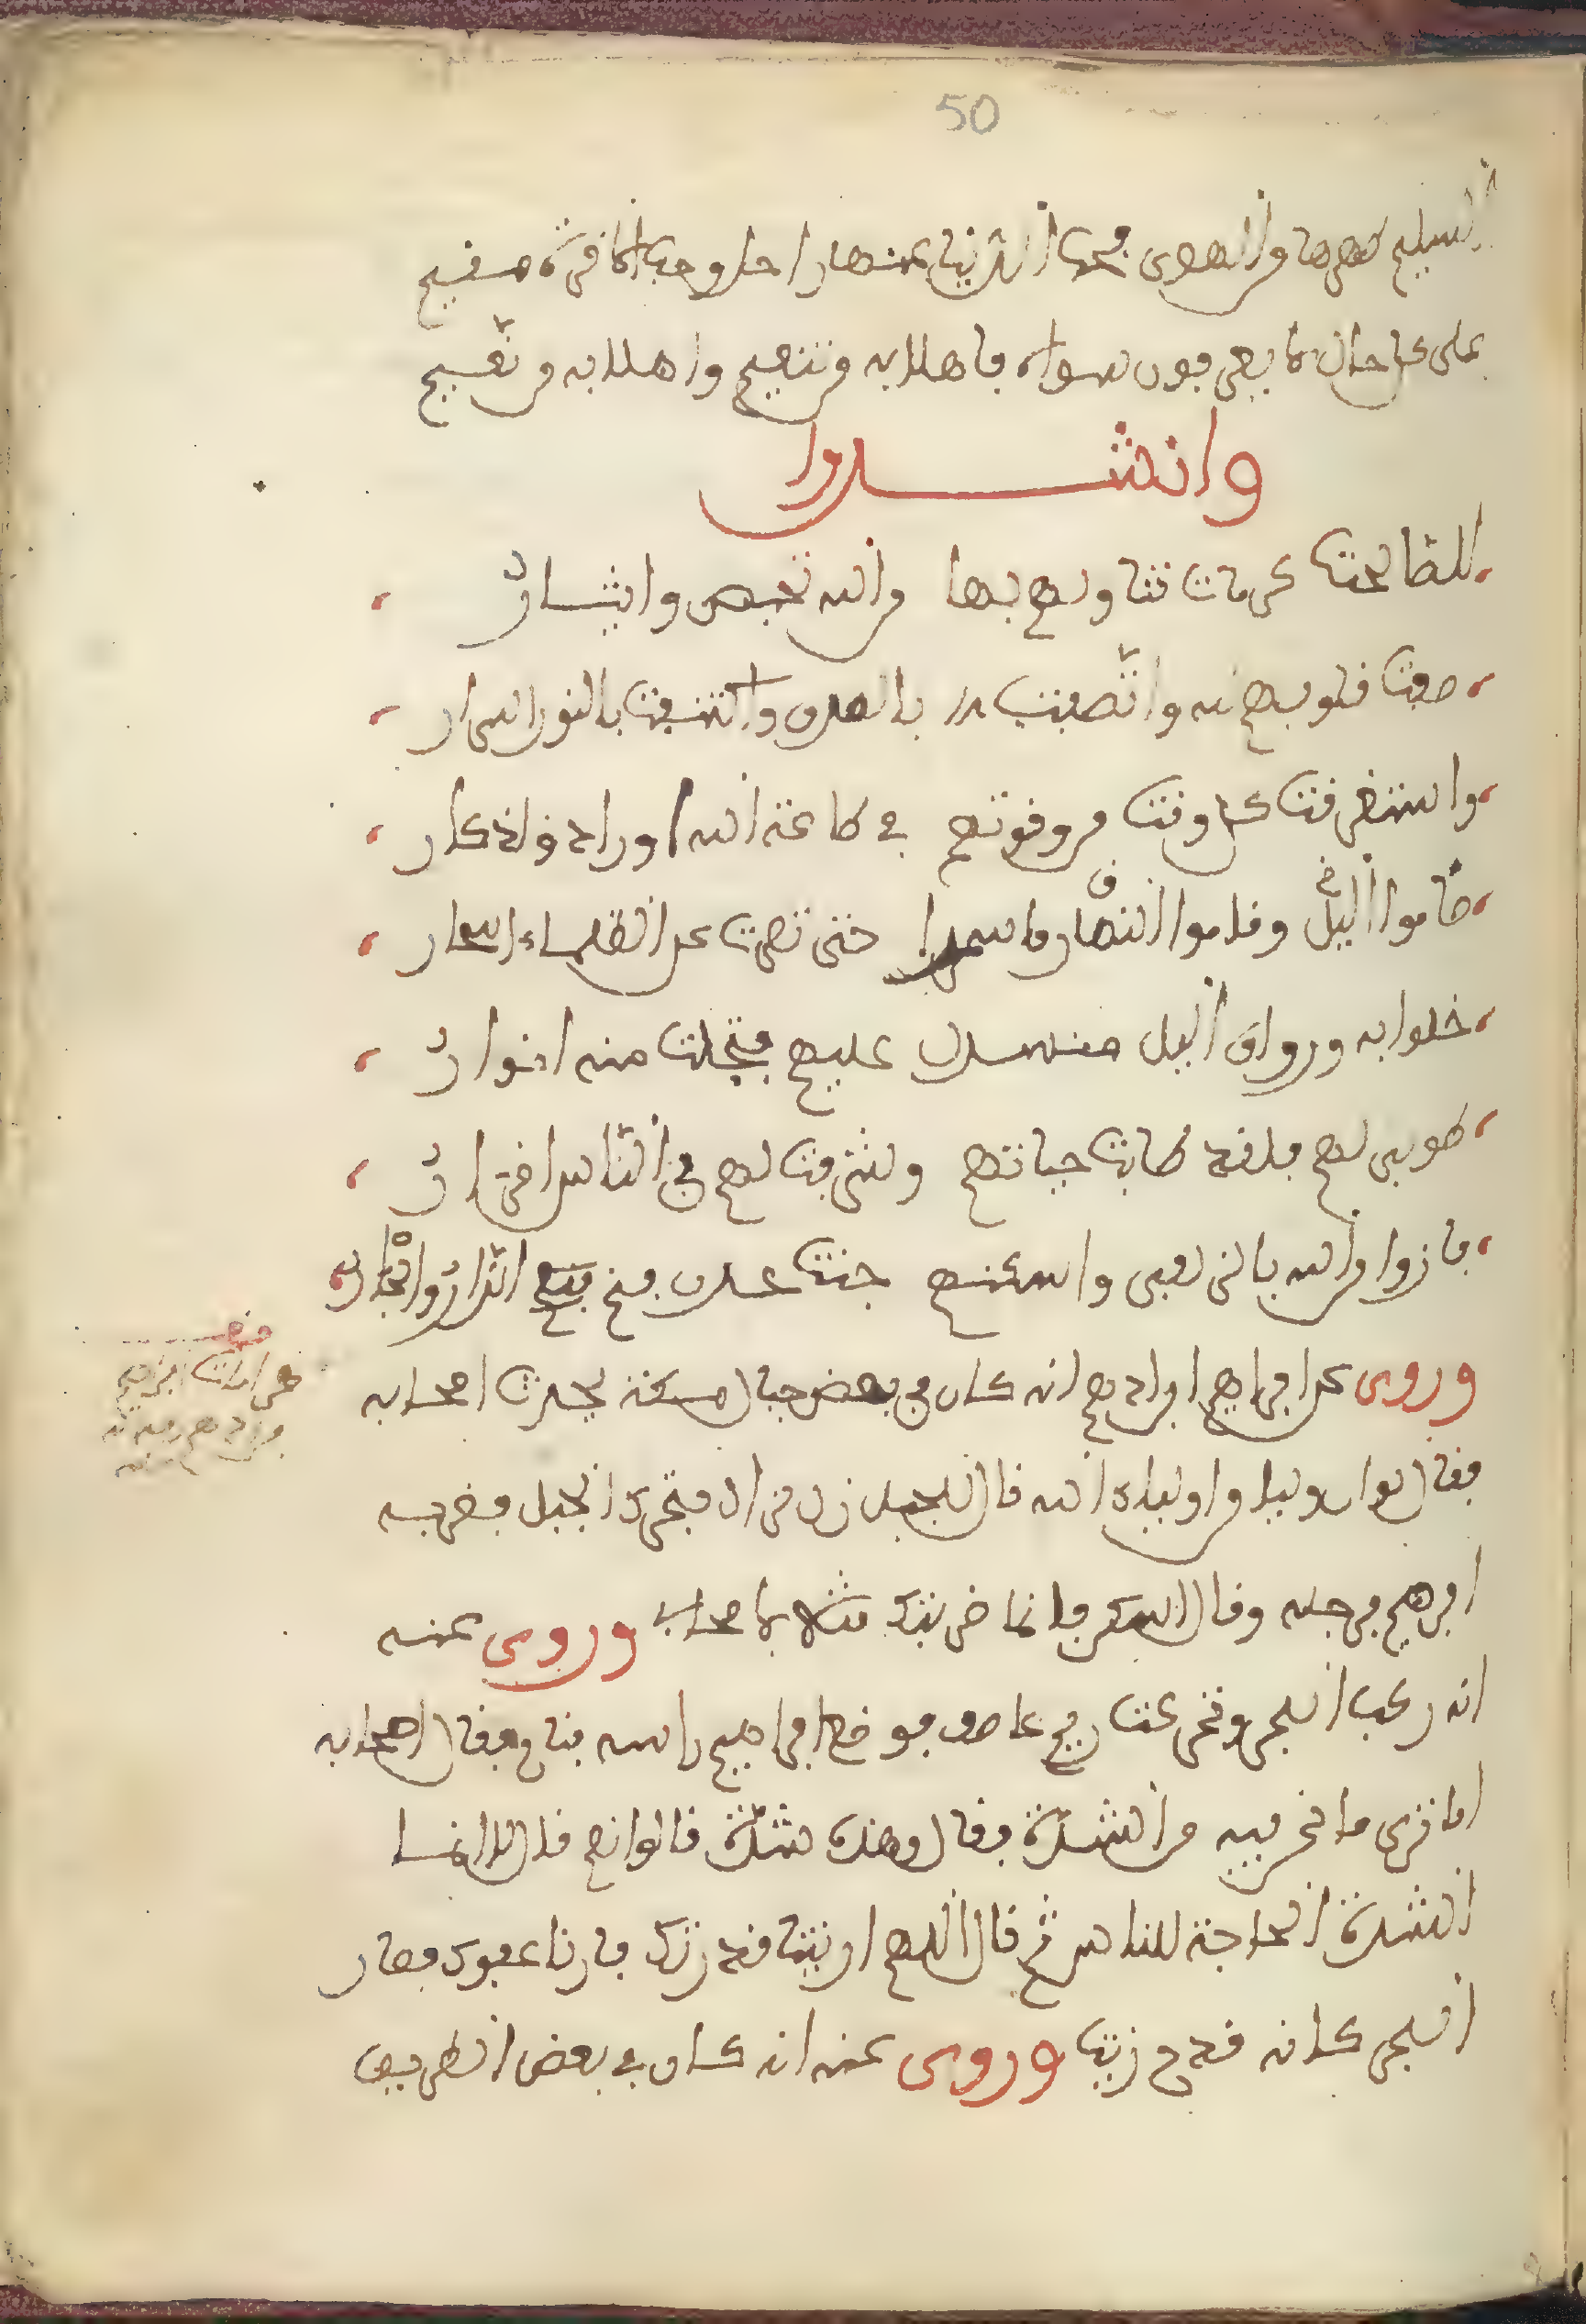 50
السليم طهرها من الهوى فحب الدنيا عنها راحل وحب الاخرة مقيم
على كل حال لا يعرفون سواه فاهلا به من نعيم واهلا به من نعيم
وانشدوا
للصالحين كرمات تناولهم بها من الله تخصيص وايثار
صفت قلوبهم لله واتصفت بالصدق واكتنفت بالنور اسرار
واستغرقت كل وقت من وقوتهم في طاعة الله اوراد واذكار
قاموا الليل وقاموا النهار وما حتى تعرت عن الظلماء اسحار
خلوا به ورواق اليل منسدل عليهم فتجلت منه انوار
طوبى لهم فلقد طابت حياتهم وشرفت لهم في الناس اقدار
فازوا من الله بالزلفى واسكنهم جنت عدن فنعم الدار والجار
وروى عن ابراهيم ابن ادهم انه كان في بعض جبال مكة يحدث اصحابه
فقال لو ان وليا من اولياء الله قال للجبل زل لزال فتحرك الجبل فضربه
ابرهيم برجله وقال اسكن فانما ضربتك مثلا لاصحابي وروى عنه
انه ركب البحر فاخذت ريح عاصف فوضع ابراهيم راسه فنام فقال اصحابه
اما ترى ما نحن فيه من الشدة فقال وهذه شدة قالوا نعم قال لا انما
الشدة الحاجة للناس ثم قال اللهم اريتنا قدرتك فارنا عفوك فصار
البحر كانه قدح زيت وروى عنه انه كان في بعض الطريق